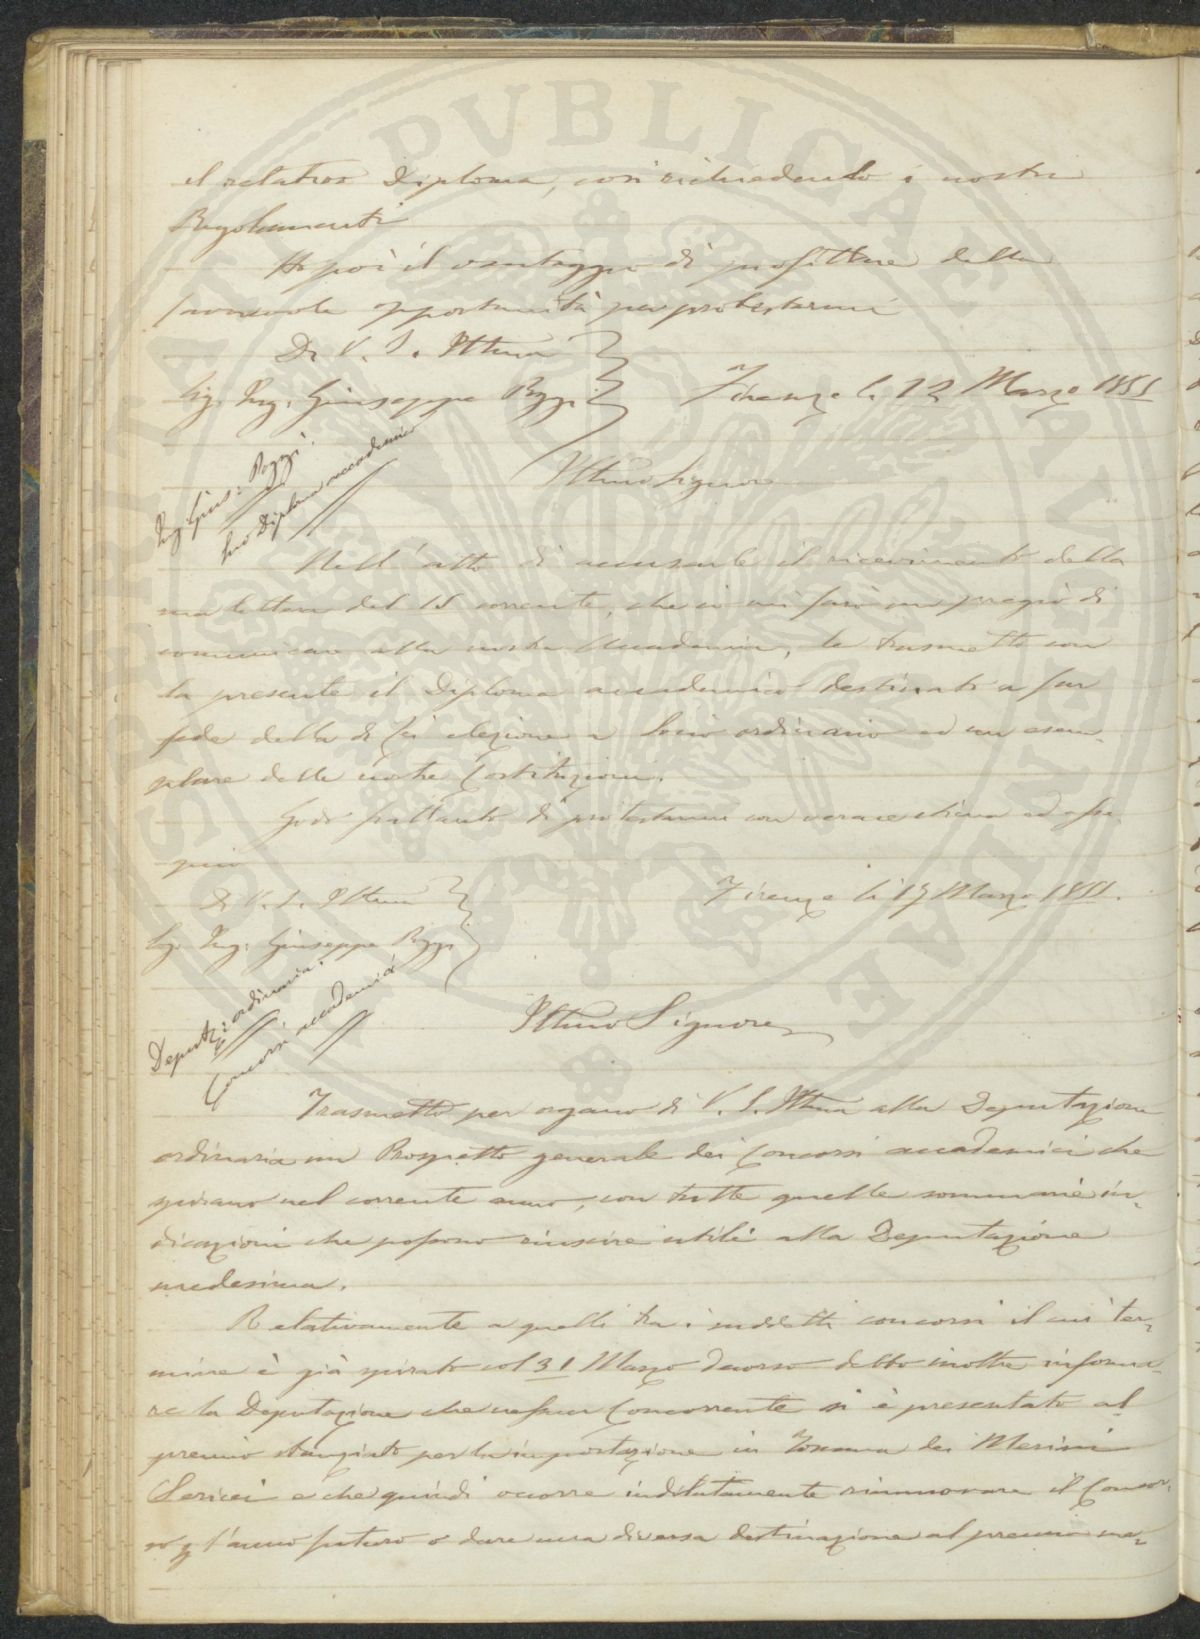 il relativo Diploma, così richiedendo i nostri
Regolamenti
Ho poi il vantaggio di profittare della
favorevole opportunità per protestarmi
Di V. S. Illma
Sig. Ing. Giuseppe Pozzi
Firenze li 12 Marzo 1855
Ing. Gius. Pozzi.
suo Diploma accademico
Illmo Signore
Nell'atto di accusarle il ricevimento della
sua lettera del 15 corrente, che io mi farò un pregio di
comunicare alla nostra Accademia, le trasmetto con
la presente il Diploma accademico destinato a far
fede della di Lei elezione a Socio ordinario ed un esem-
plare delle nostre Costituzioni.
Godo frattanto di protestarmi con verace stima ed osse-
quio
Di V. S. Illma
Firenze li 17 Marzo 1855.
Sig. Ing. Giuseppe Pozzi
Deputaz: ordinaria.
Concorsi accademici
Illmo Signore
Trasmetto per organo di V. S. Illma alla Deputazione
ordinaria un Prospetto generale dei Concorsi accademici che
spirano nel corrente anno, con tutte quelle sommarie in-
dicazioni che possono riuscire utili alla Deputazione
medesima.
Relativamente a quelli tra i suddetti concorsi il cui ter-
mine è già spirato col 31 Marzo decorso debbo inoltre informa-
re la Deputazione che nessun Concorrente si è presentato al
premio stanziato per la importazione in Toscana dei Merini
Sericei e che quindi occorre indilatamente rinnuovare il Concor-
so p l'anno futuro o dare una diversa destinazione al premio me-
PVBLICAE